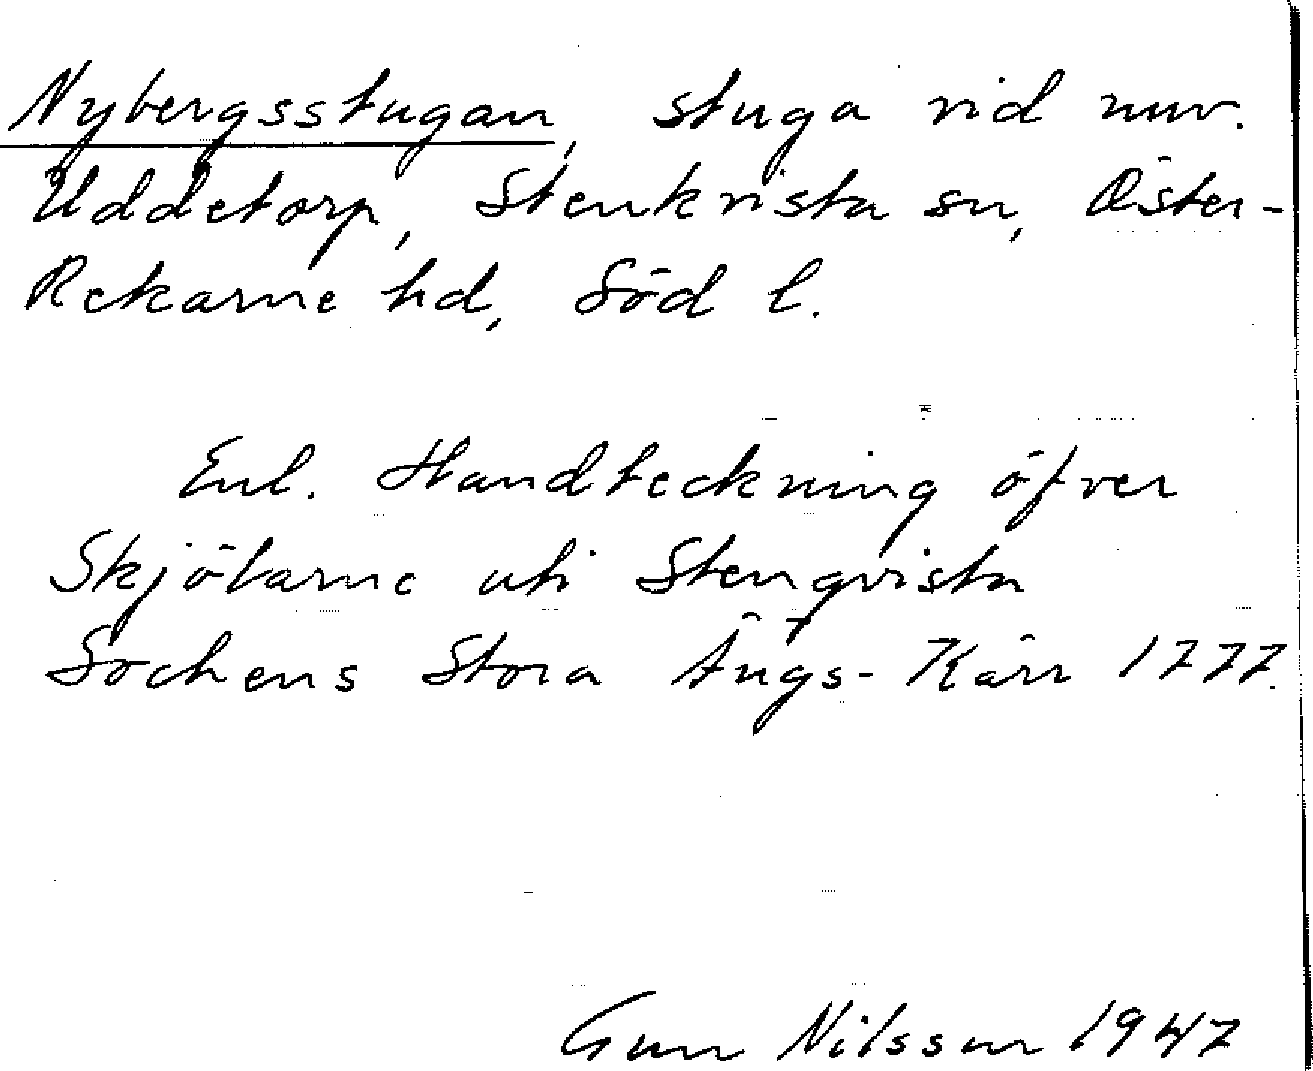 Nybergsstugan, stuga vid nuv.
Uddetorp, Stenkvista sn, Öster-
Rekarne hd, Söd l.
Enl. Handteckning öfver
Skjötarne uti Stenqvista
Sochens Stora Ängs-Kärr 1777.
Gun Nilsson 1947